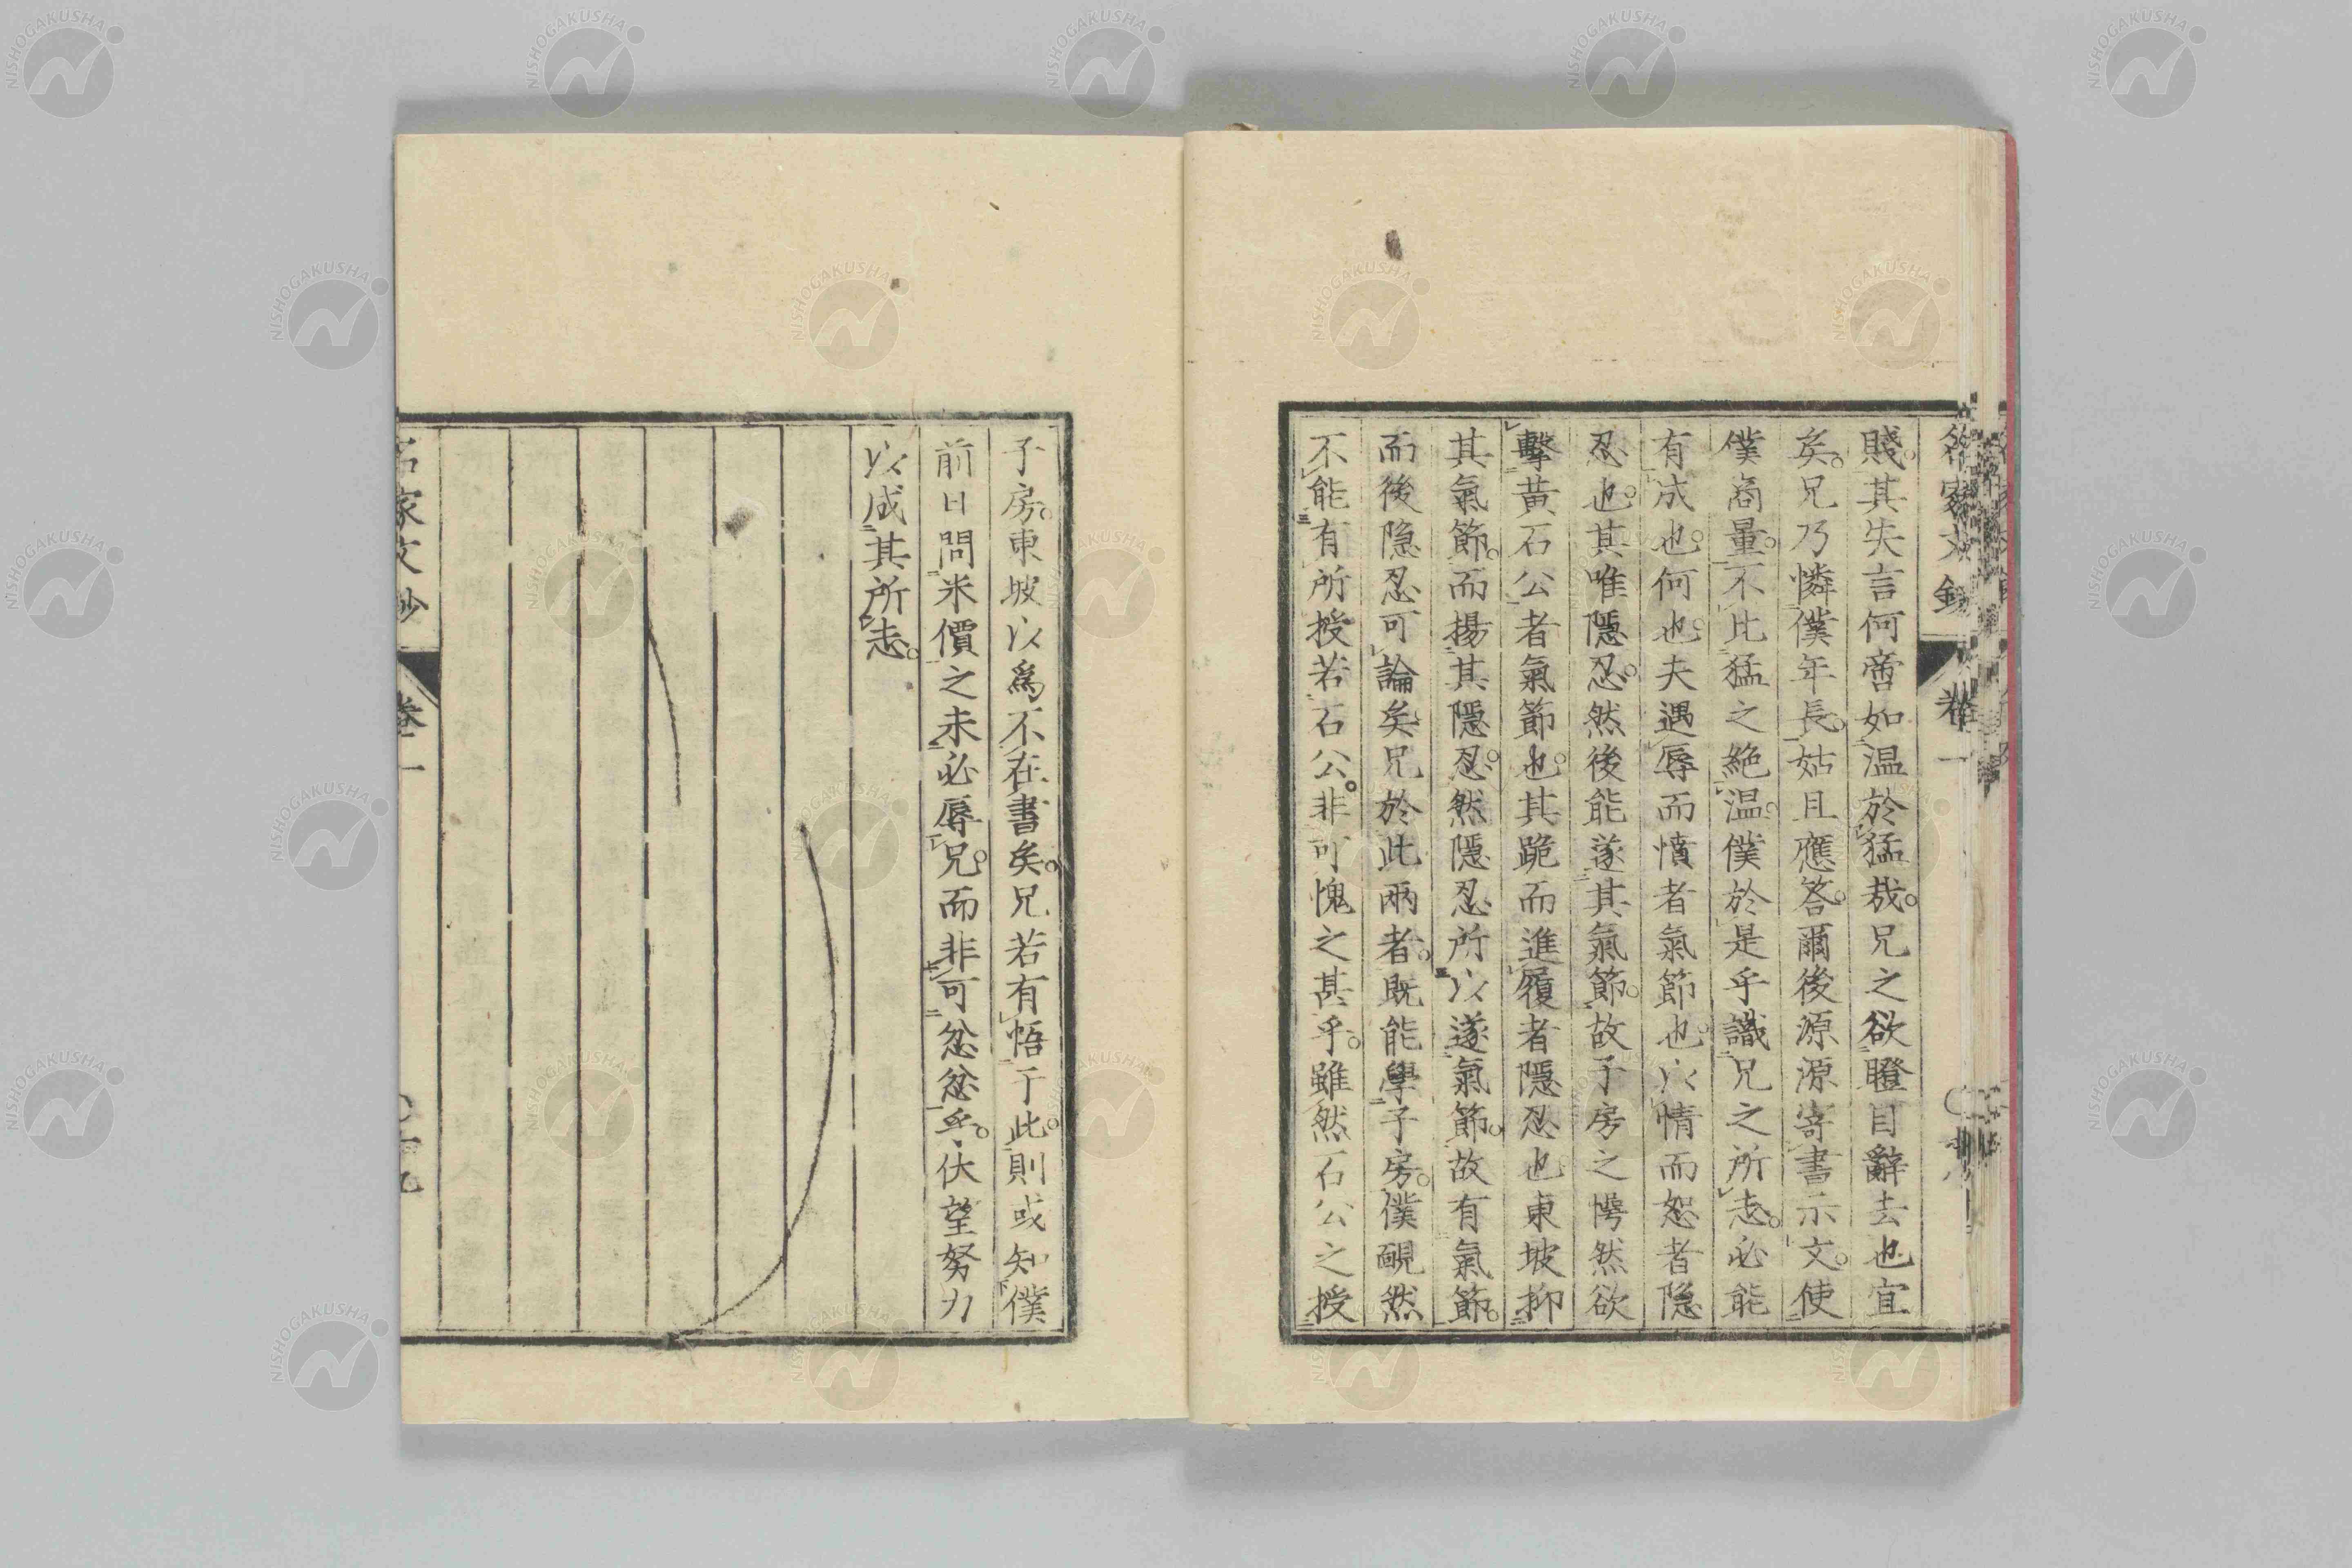 賤。其失言何啻如温於猛哉。兄之欲瞪目辭去也宜
矣。兄乃憐僕年長。姑且應答。爾後源源寄書示文。使
僕商量。不比猛之絶温。僕於是乎識兄之所志。必能
有成也。何也。夫遇辱而憤者氣節也。以情而恕者隠
忍也。其唯隱忍。然後能遂其氣節。故子房之愕然欲
擊黃石公者氣節也。其跪而進履者隱忍也東坡抑
其氣節。而揚其隱忍。然隱忍所以遂氣節。故有氣節。
而後隠忍可論矣兄於此兩者。既能學子房。僕靦然
不能有所授若石公。非可愧之甚乎。雖然石公之授
子房。東坡以爲不在書矣。兄若有悟于此。則或知僕
前日問米價之未必辱兄。而非可忿忿乎。伏望努力
以成其所志。
名家文抄
卷一
NISHOGAKUSHA